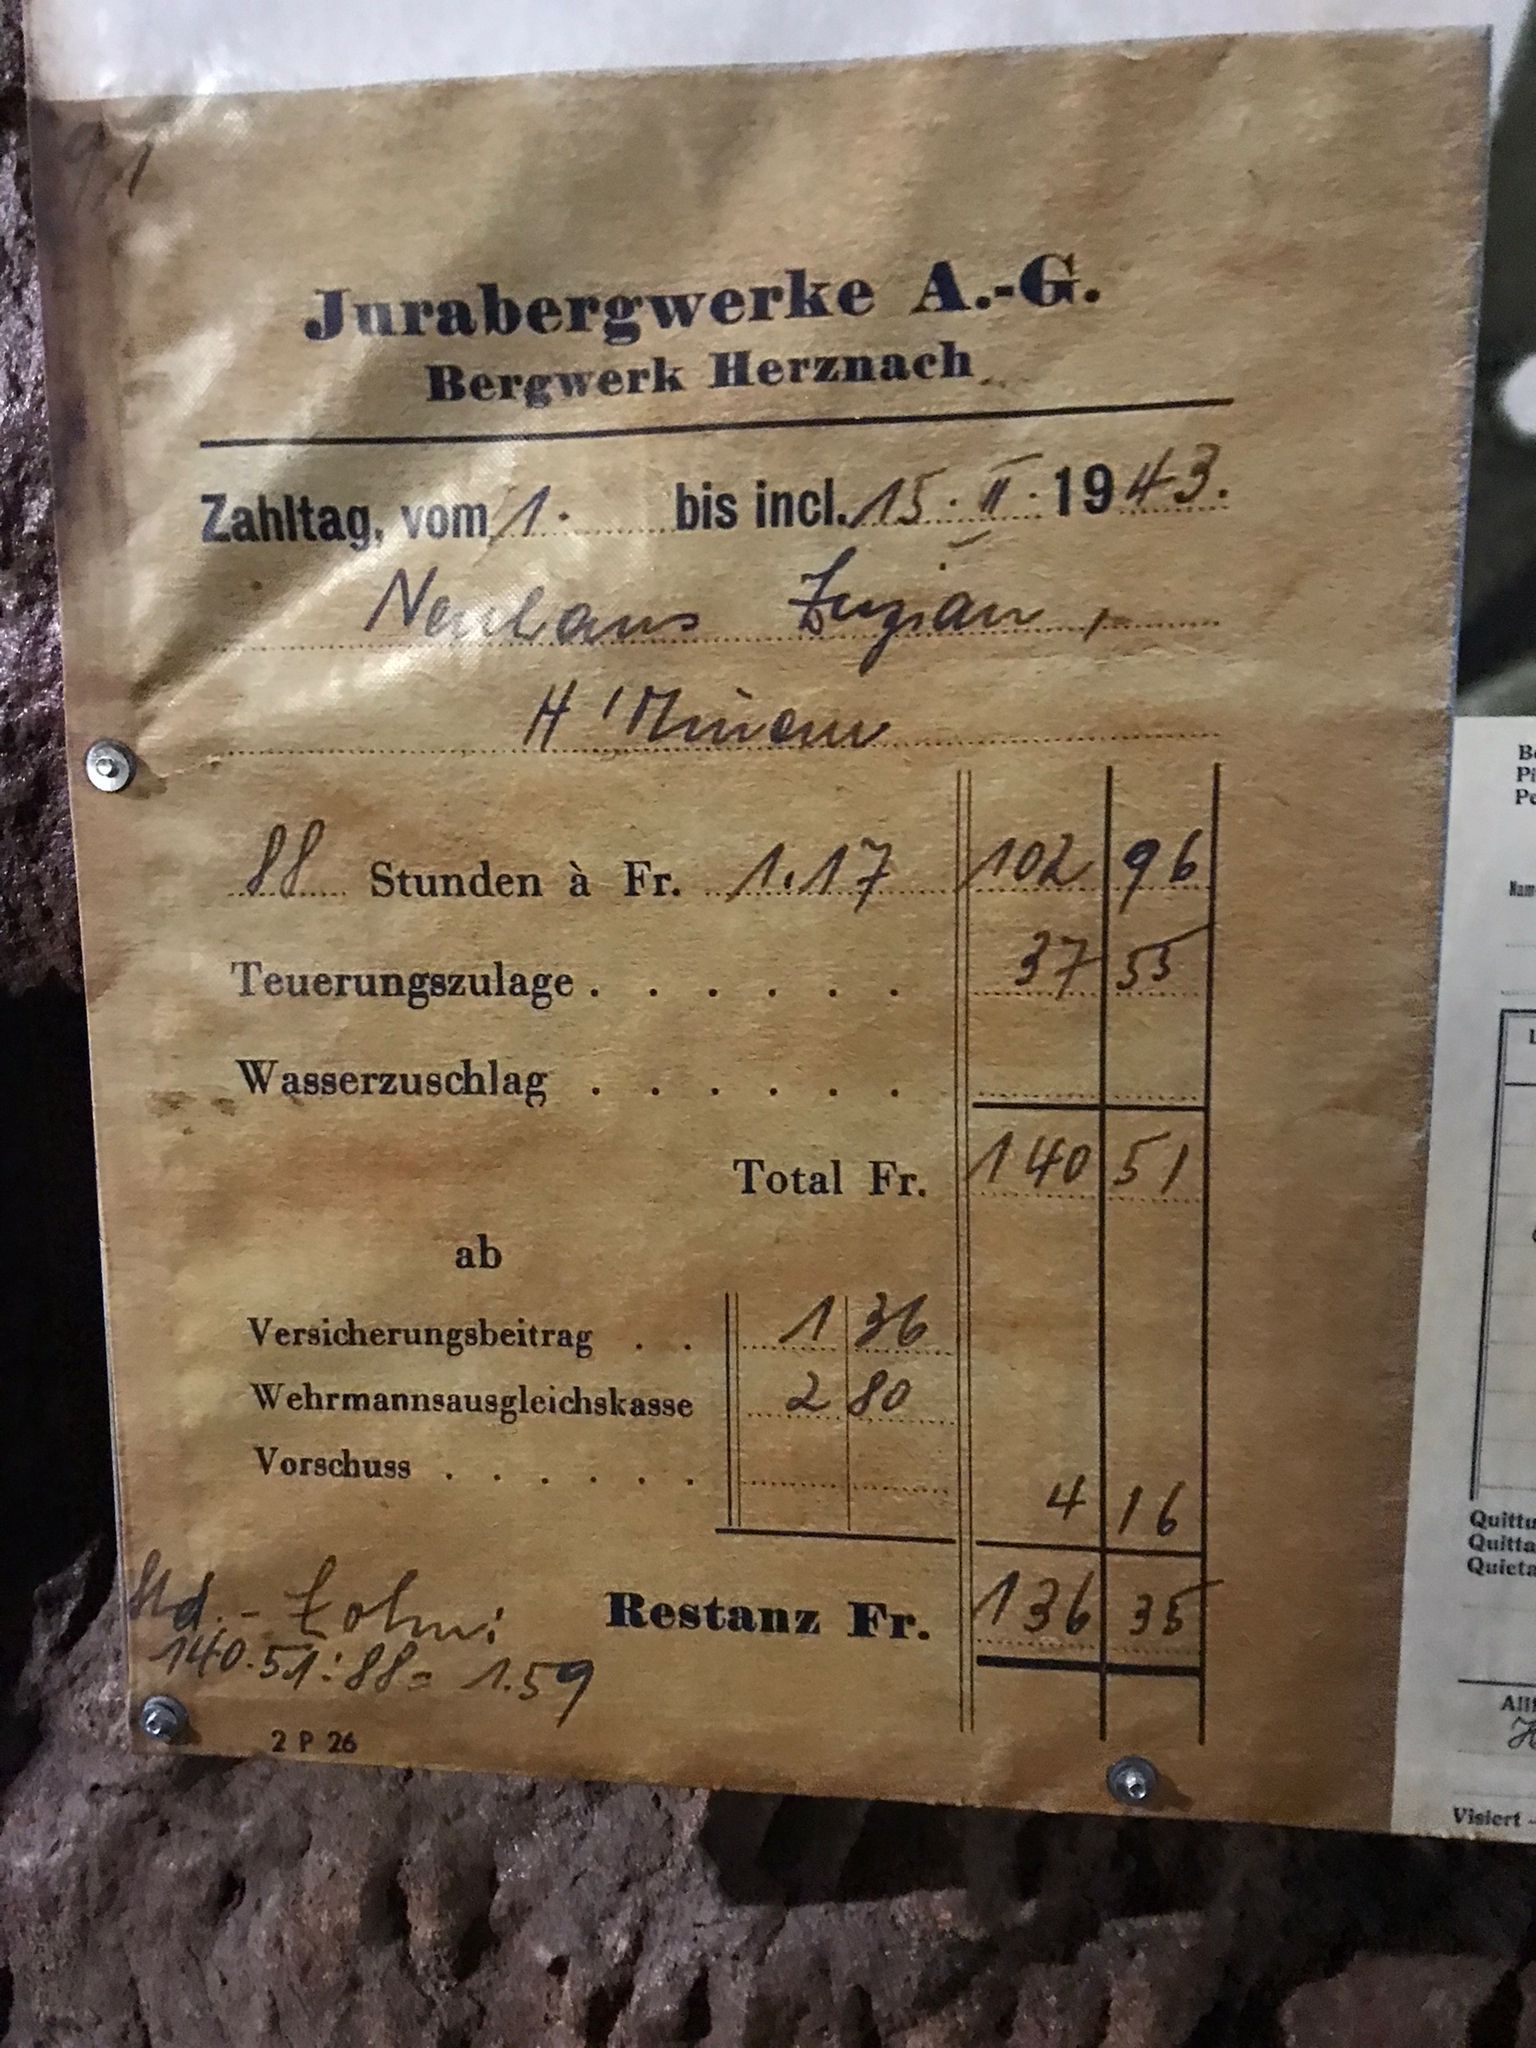 Jurabergwerke A.-G.
Bergwerk Herznach
Zahltag, vom 1. bis incl. 15. II. 1943.
Neuhaus
88 Stunden à Fr. 1.17 102 96
Teuerungszulage . . . . . . 37 55
Wasserzuschlag . . . . . .
Total Fr. 140 51
ab
Versicherungsbeitrag . . 1 36
Wehrmannsausgleichskasse 2 80
Vorschuss . . . . . .
4 16
Std.-Lohn: Restanz Fr. 136 35
140.51:88= 1.59
2 P 26
Quittu
Quitta
Quieta
Visiert -